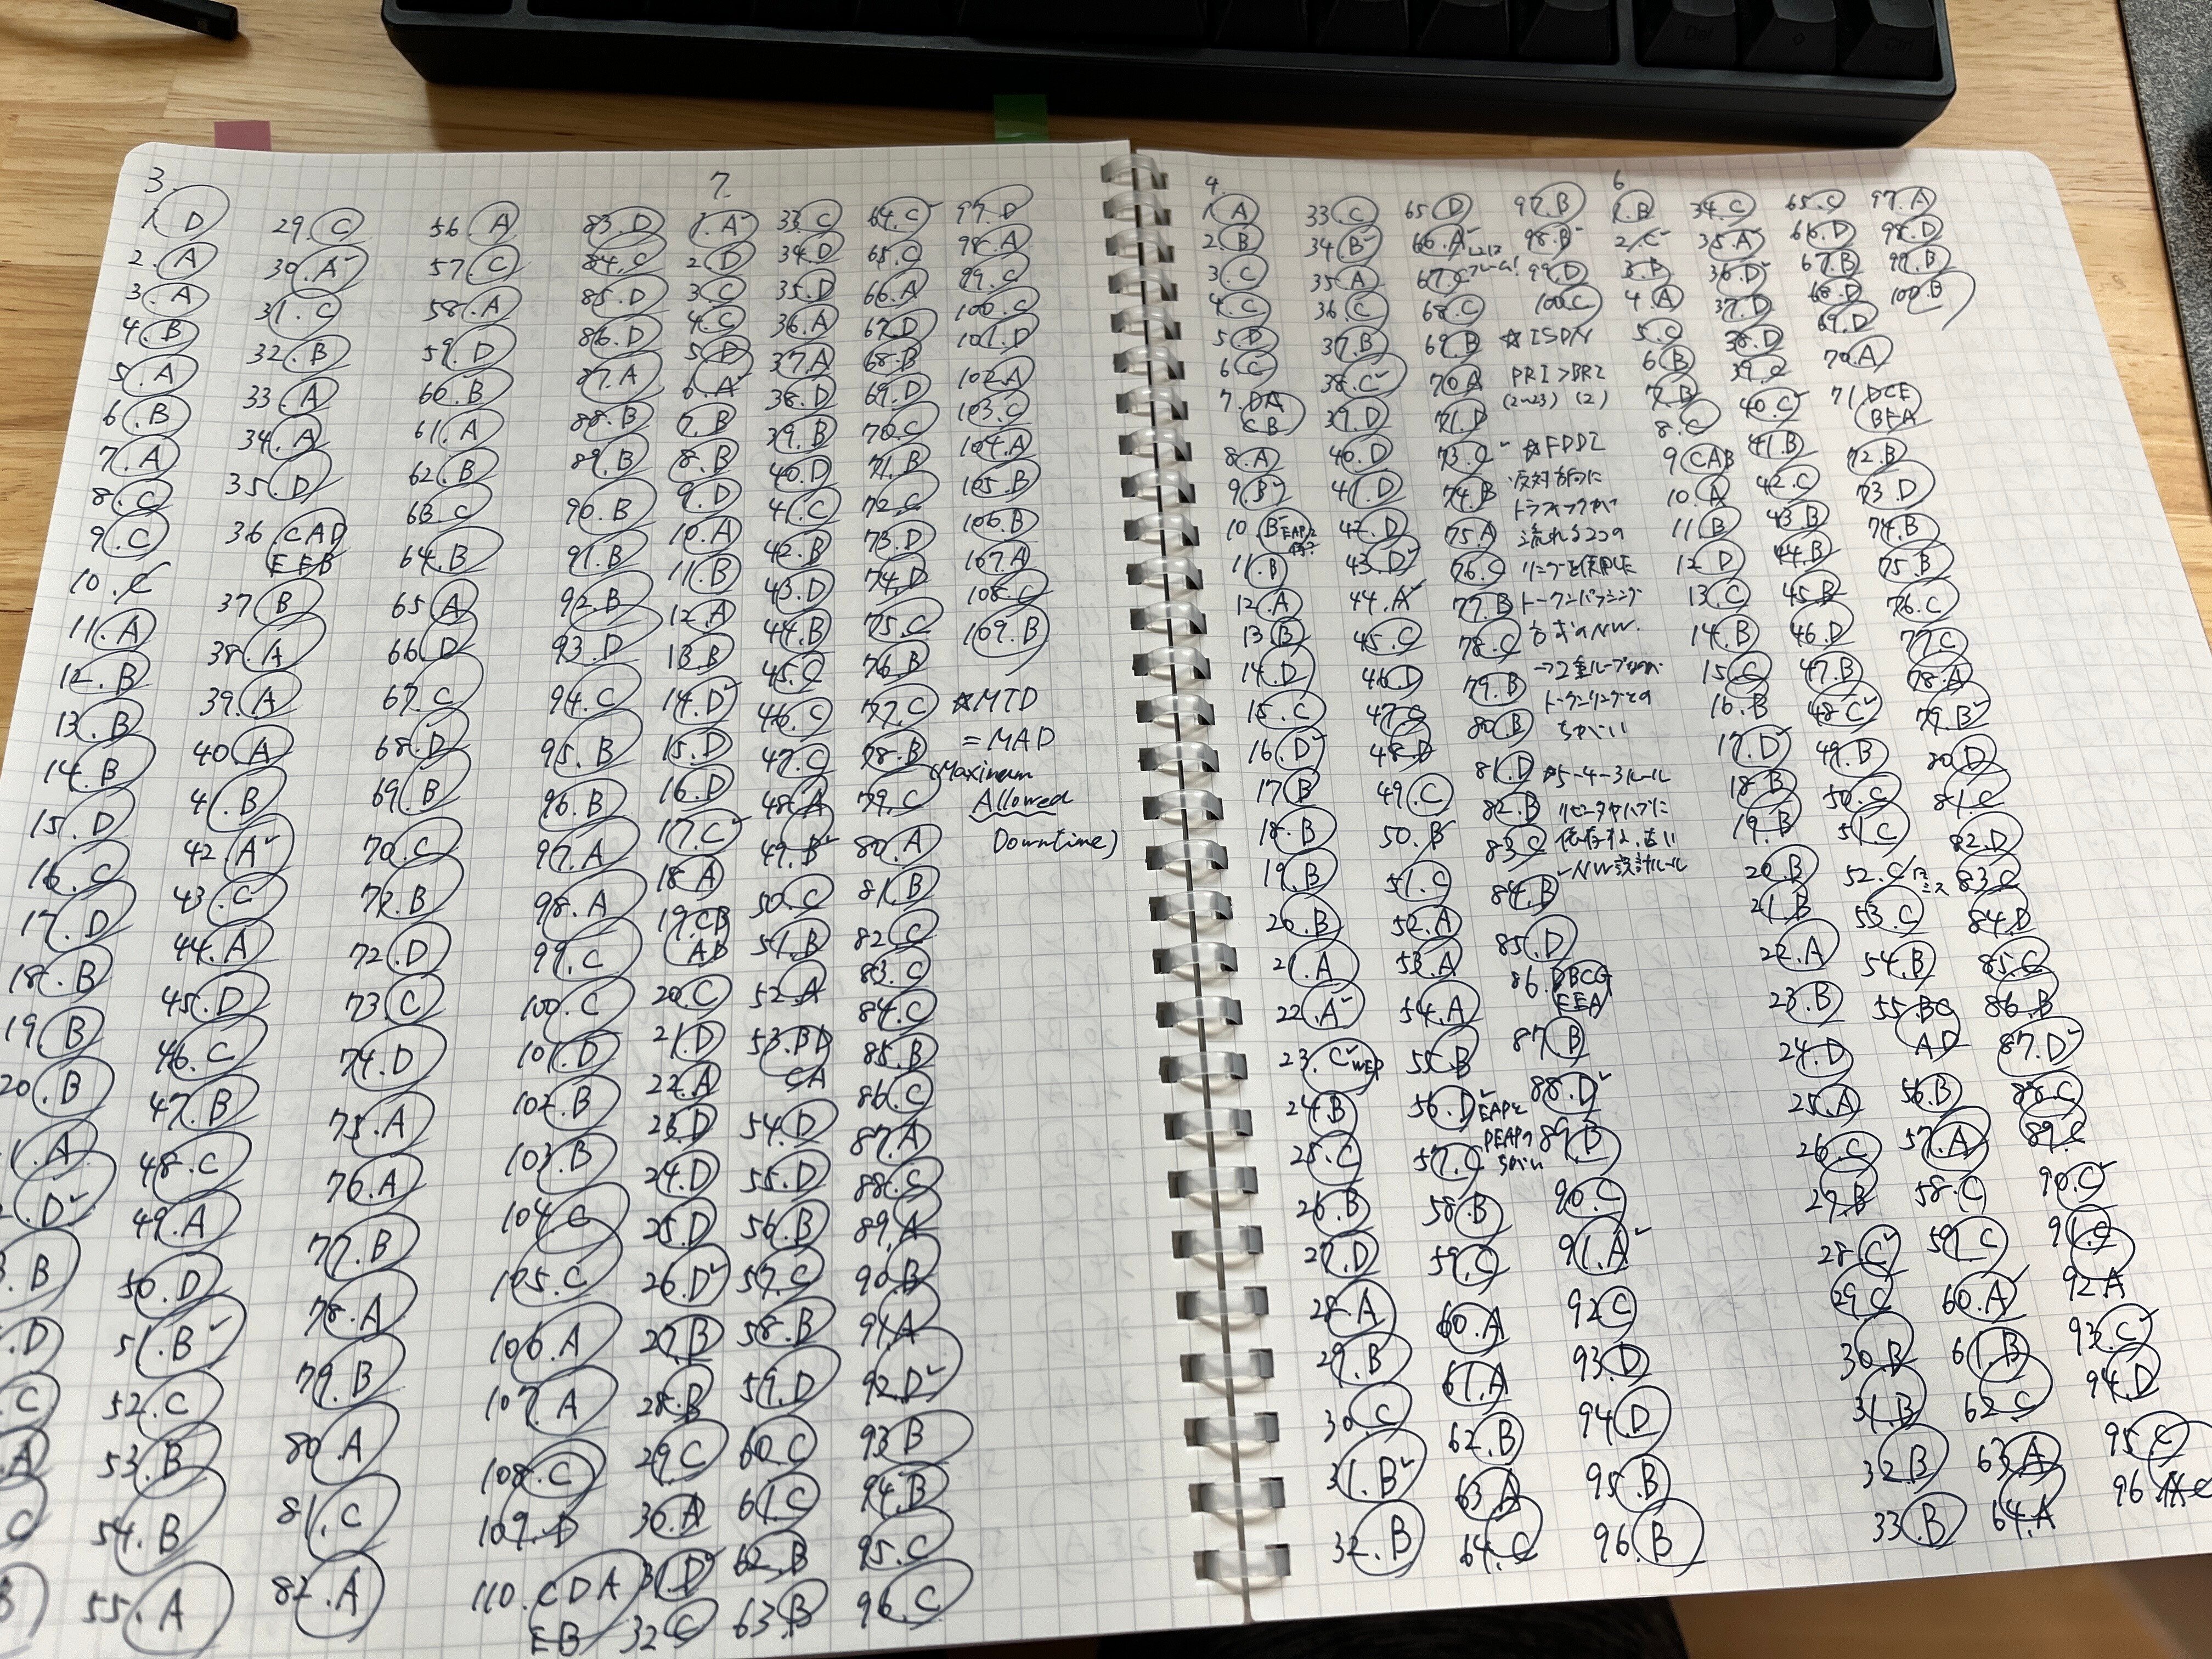 3.
1. D
2. A
3. A
4. B
5. A
6. B
7. A
8. C
9. C
10. C
11. A
12. B
13. B
14. B
15. D
16. C
17. D
18. B
19. B
20. B
1. A
D
B
D
C
A
C
B
29. C
30. A
31. C
32. B
33. A
34. A
35. D
36 CAD
EFB
37 B
38. A
39. A
40 A
41. B
42. A
43. C
44. A
45. D
46. C
47. B
48. C
49. A
50. D
51. B
52. C
53. B
54. B
55. A
56 A
57 C
58. A
59. D
60. B
61. A
62. B
63. C
64. B
65 A
66 D
67. C
68. D
69. B
70. C
72. B
72. D
73 C
74. D
75. A
76. A
77. B
78. A
79. B
80 A
81. C
82. A
83. D
84. C
85. D
86. D
87. A
88. B
89. B
90. B
91. B
92. B
93. D
94. C
95. B
96. B
97. A
98. A
99. C
100. C
101. D
102. B
103. B
104. C
105. C
106. A
107. A
108. C
109. D
110. CDA
EB
7.
1. A
2. D
3. C
4. C
5. D
6. A
7. B
8. B
9. D
10. A
11. B
12. A
13 B
14. D
15. D
16. D
17. C
18 A
19. CB
AD
20. C
21. D
22. A
23. D
24. D
25. D
26. D
27. B
28. B
29. C
30. A
31. D
32 C
33 C
34. D
35. D
36. A
37 A
38. D
39. B
40. D
41. C
42. B
43. D
44. B
45. C
46. C
47. C
48. A
49. B
50. C
51. B
52. A
53. BD
CA
54. D
55. D
56 B
57. C
58. B
59. D
60. C
61. C
62. B
63. B
64. C
65. C
66. A
67. D
68. B
69. D
70. C
71. B
72. C
73. D
74. D
75. C
76 B
77. C
78. B
79. C
80. A
81. B
82 C
83. C
84. C
85. B
86. C
87. A
88. C
89. A
90. B
91. A
92. D
93 B
94. B
95. C
96. C
97. D
98. A
99. C
100. C
101. D
102. A
103. C
104. A
105. B
106. B
107. A
108. C
109. B
☆MTD
=MAD
(Maximum
Allowed
Downtime)
4.
1. A
2. B
3. C
4. C
5. D
6 C
7. DA
CB
8. A
9. B
10. B EAPと
何?
11. B
12. A
13 B
14. D
15. C
16. D
17 B
18. B
19. B
20. B
21. A
22. A
23. C WEP
24. B
25. C
26. B
27. D
28. A
29. B
30. C
31. B
32. B
33. C
34 B
35. A
36. C
37. B
38. C
39. D
40. D
41. D
42. D
43. D
44. A
45. C
46. D
47. C
48. D
49. C
50. B
51. C
52. A
53. A
54. A
55. B
56. D EAPと
PEAPの
ちがい
57. C
58. B
59. C
60. A
61. A
62. B
63. A
64. C
65 D
66. A
67. C
68. C
69. B
70. A
71. D
73. C
74. B
75. A
76. C
77. B
78. C
79. B
80 B
81. D
82. B
83. C
84. B
85. D
86. DBCG
FEA
87. B
88. D
89. B
90. C
91. A
92 C
93 D
94 D
95 B
96. B
97. B
98. B
99. D
100. C
☆ISDN
PRI>BRI
(2~23) (2)
☆FDDI
反対方向に
トラフィックが
流れる2つの
リングを使用した
トークンパッシング
方式のNW.
→2重ループなのが
トークンリングとの
ちがい
☆5-4-3ルール
リピータやハブに
依存する、古い
NW設計ルール
6
1. B
2. C
3. B
4. A
5. C
6 B
7. B
8. C
9 CAB
10. A
11 B
12. D
13. C
14. B
15. C
16. B
17. D
18. B
19. B
20. B
21. B
22. A
23. B
24. D
25. A
26. C
27. B
28. C
29. C
30. B
31. B
32. B
33. B
34. C
35. A
36. D
37. D
38. D
39. C
40. C
41. B
42. C
43. B
44. B
45. B
46. D
47. B
48. C
49. B
50. C
51. C
52. C
53. C
54. B
55. BC
AD
56. B
57. A
58. C
59. C
60. A
61. B
62. C
63 A
64. A
65. C
66. D
67. B
68. D
69. D
70. A
71. DCE
BFA
72. B
73 D
74. B
75. B
76. C
77 C
78. A
79. B
80 D
81. C
82. D
83. C
84. D
85. C
86. B
87. D
88. C
89. C
90. C
91. C
92 A
93. C
94. D
95. C
96
97. A
98. D
99. B
100. B